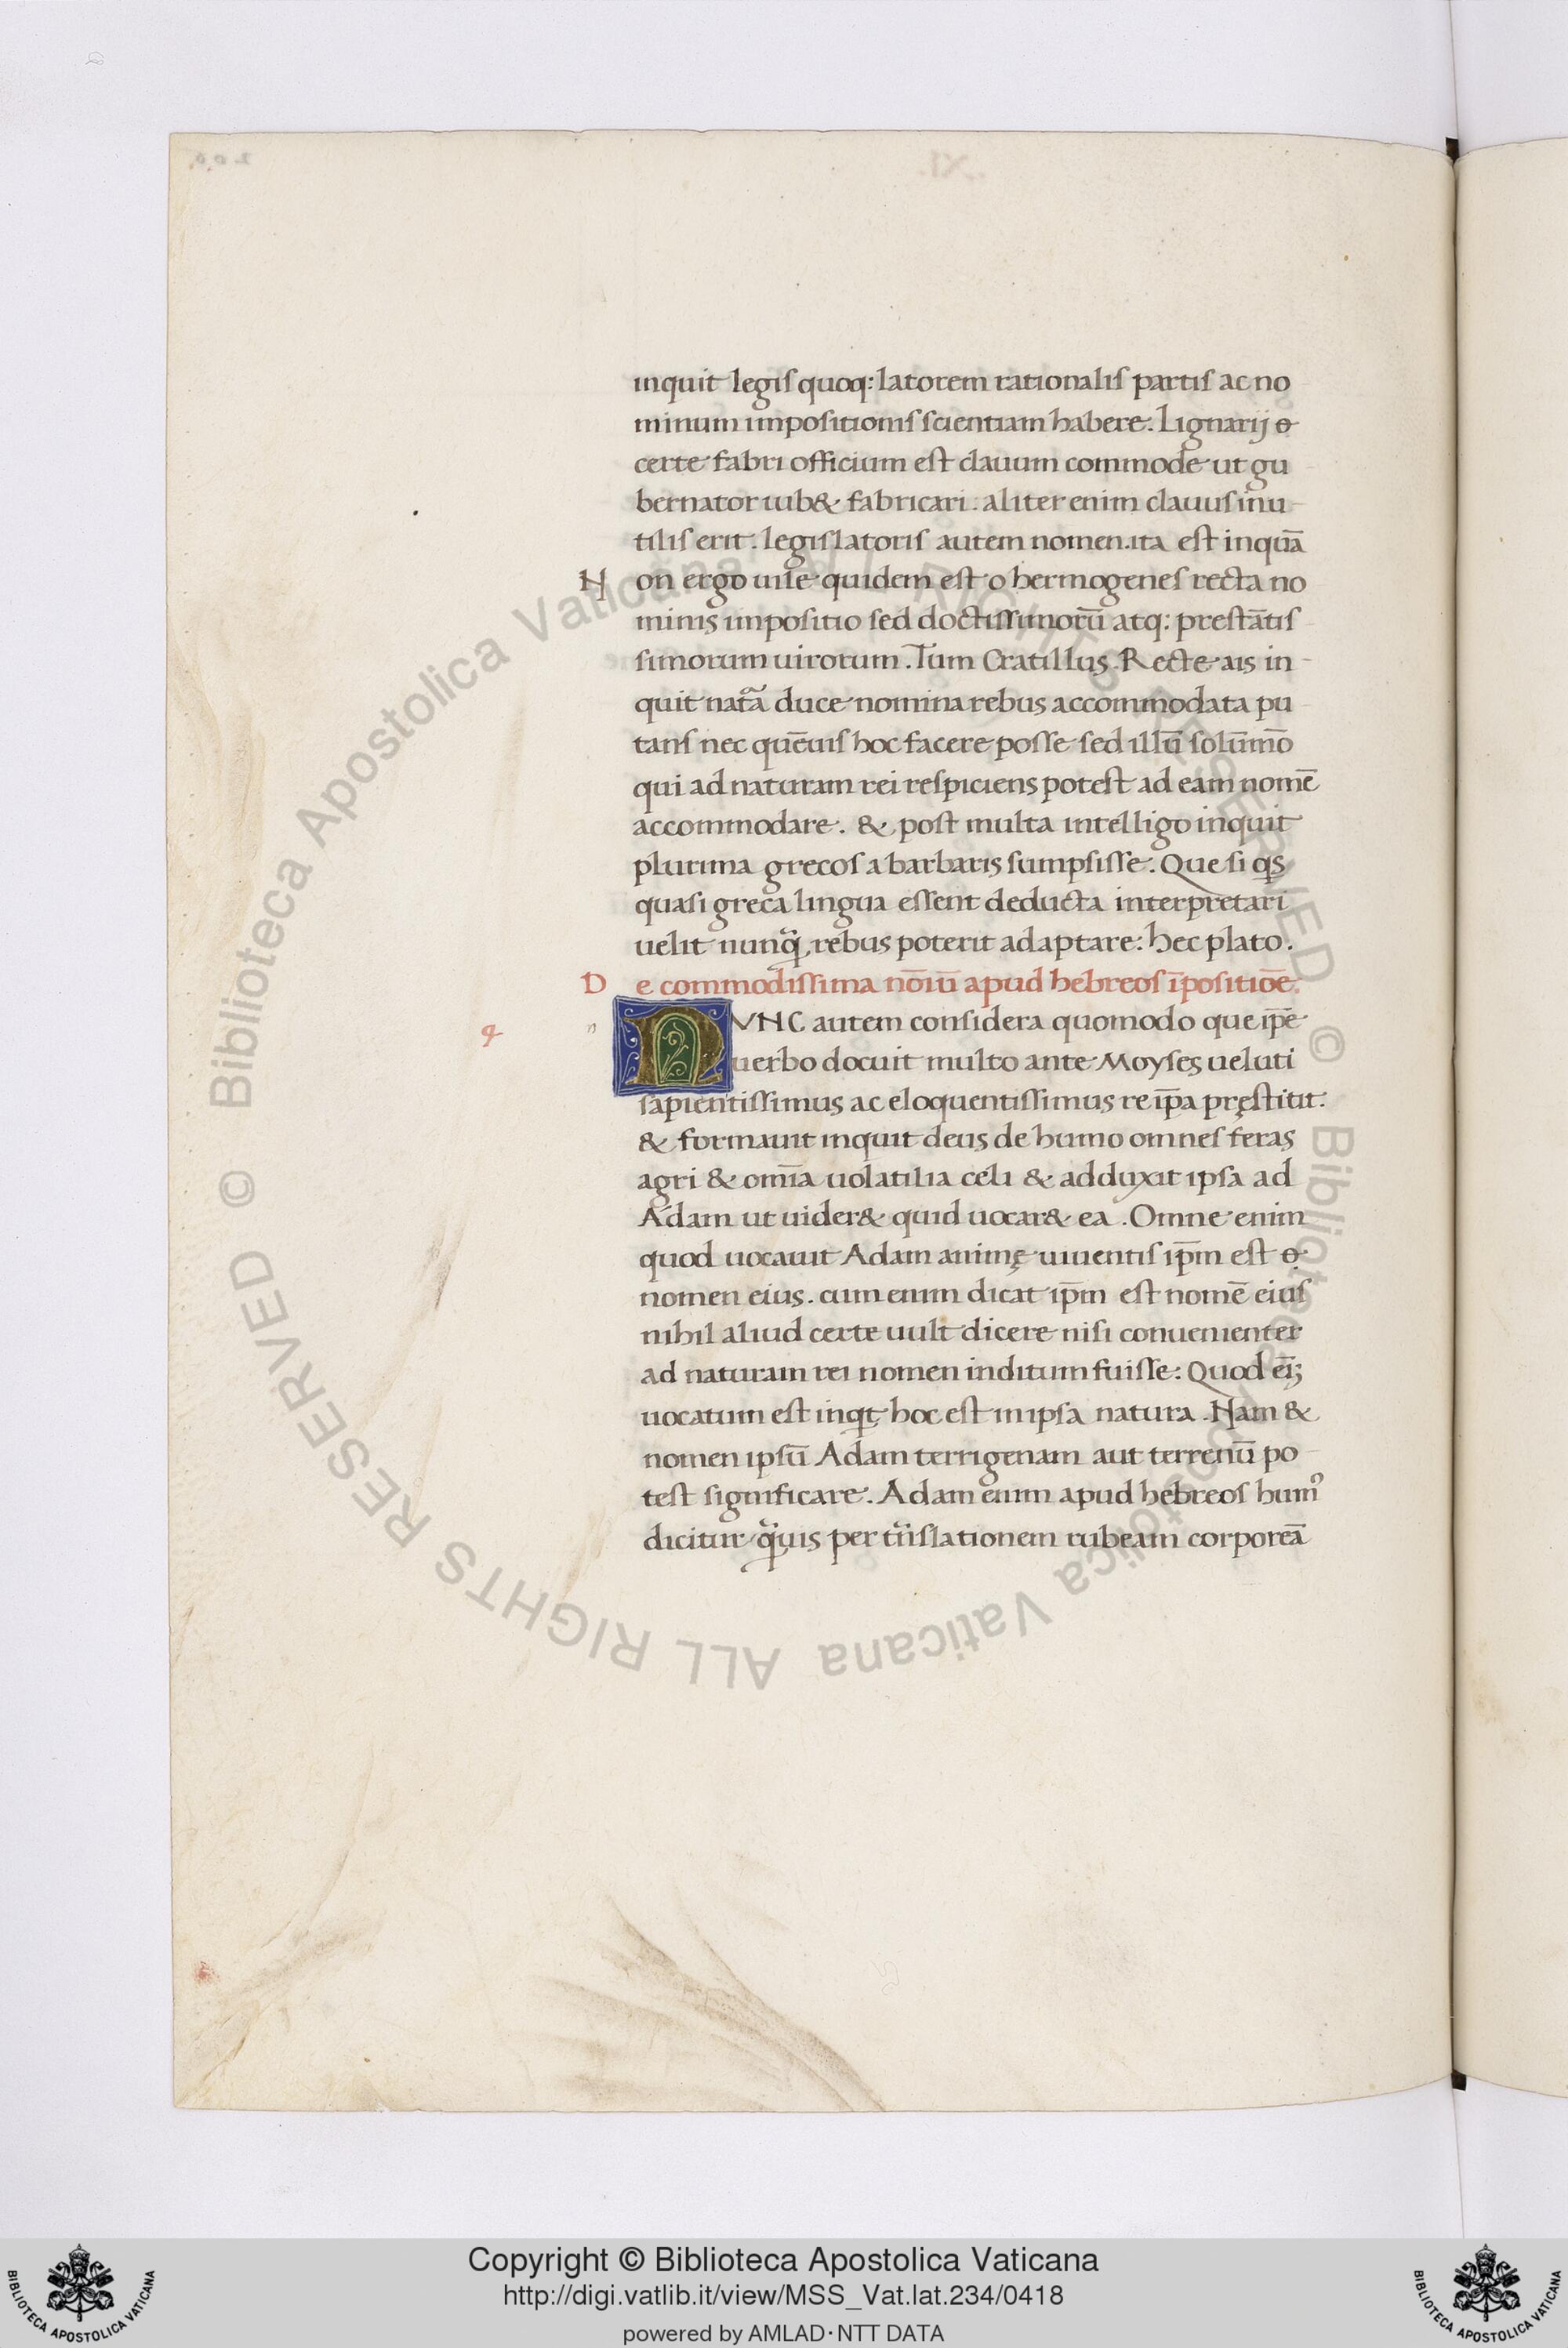 inquit legis quoq: latorem rationalis partis ac no
minum impositionis scientiam habere. Lignarij
certe fabri officium est clauum commode ut gu
bernator iub& fabricari. aliter enim clauus inu
tilis erit. legislatoris autem nomen. ita est inquā
Non ergo uile quidem est o hermogenes recta no
minis impositio sed doctissimorū atq: prestātis
simorum uirorum. Tum Cratillus. Recte ais in
quit natā duce nomina rebus accommodata pu
tans nec quēuis hoc facere posse sed illū solūmō
qui ad naturam rei respiciens potest ad eam nomē
accommodare. & post multa intelligo inquit
plurima grecos a barbaris sumpsisse. Que si qs
quasi greca lingua essent deducta interpretari
uelit nunq̃ rebus poterit adaptare: hec plato.
De commodissima nōiū apud hebreos īpositiōe.
NVNC autem considera quomodo que ip̄e
uerbo docuit multo ante Moyses ueluti
sapientissimus ac eloquentissimus re ip̄a pręstitit.
& formauit inquit deus de humo omnes feras
agri & om̄ia uolatilia celi & adduxit ipsa ad
Adam ut uider& quid uocar& ea. Omne enim
quod uocauit Adam animę uiuentis ip̄m est
nomen eius. cum enim dicat ip̄m est nomē eius
nihil aliud certe uult dicere nisi conuenienter
ad naturam rei nomen inditum fuisse: Quod
uocatum est inqt hoc est in ipsa natura. Nam &
nomen ipsū Adam terrigenam aut terrenū po
test significare. Adam enim apud hebreos hum᾿
dicitur q̃uis per trãslationem rubeam corporeā
Copyright © Biblioteca Apostolica Vaticana
http://digi.vatlib.it/view/MSS_Vat.lat.234/0418
powered by AMLAD·NTT DATA